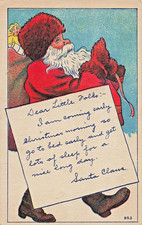 Dear Little Folks:-
I am coming early
Christmas morning so
go to bed early and get
lots of sleep for a
nice long day.
Santa Claus